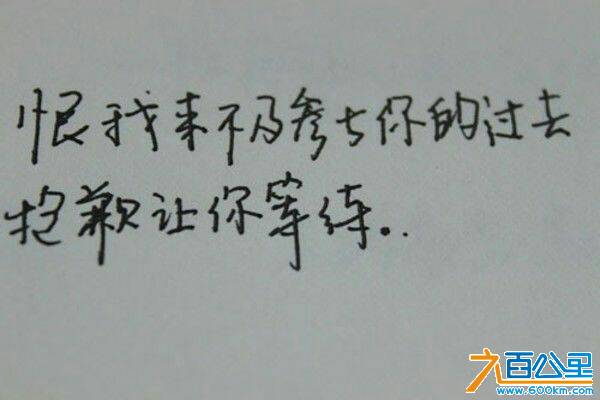 恨我来不及参与你的过去
抱歉让你等练。..
六百公里
www.600km.com